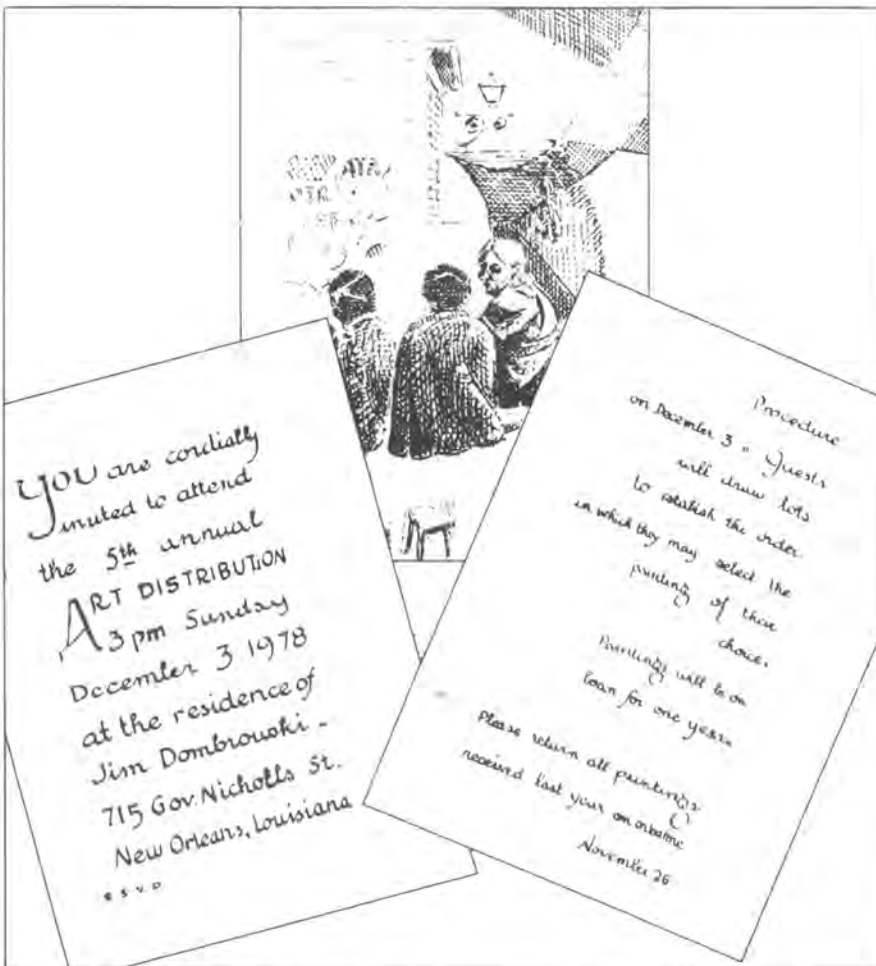 You are cordially
invited to attend
the 5th annual
ART DISTRIBUTION
3 pm Sunday
December 3 1978
at the residence of
Jim Dombrowski -
715 Gov. Nicholls St.
New Orleans, Louisiana
R S V P
Procedure
on December 3 Guests
will draw lots
to establish the order
in which they may select the
painting of their
choice.
Paintings will be on
loan for one year.
Please return all paintings
received last year on or before
November 26